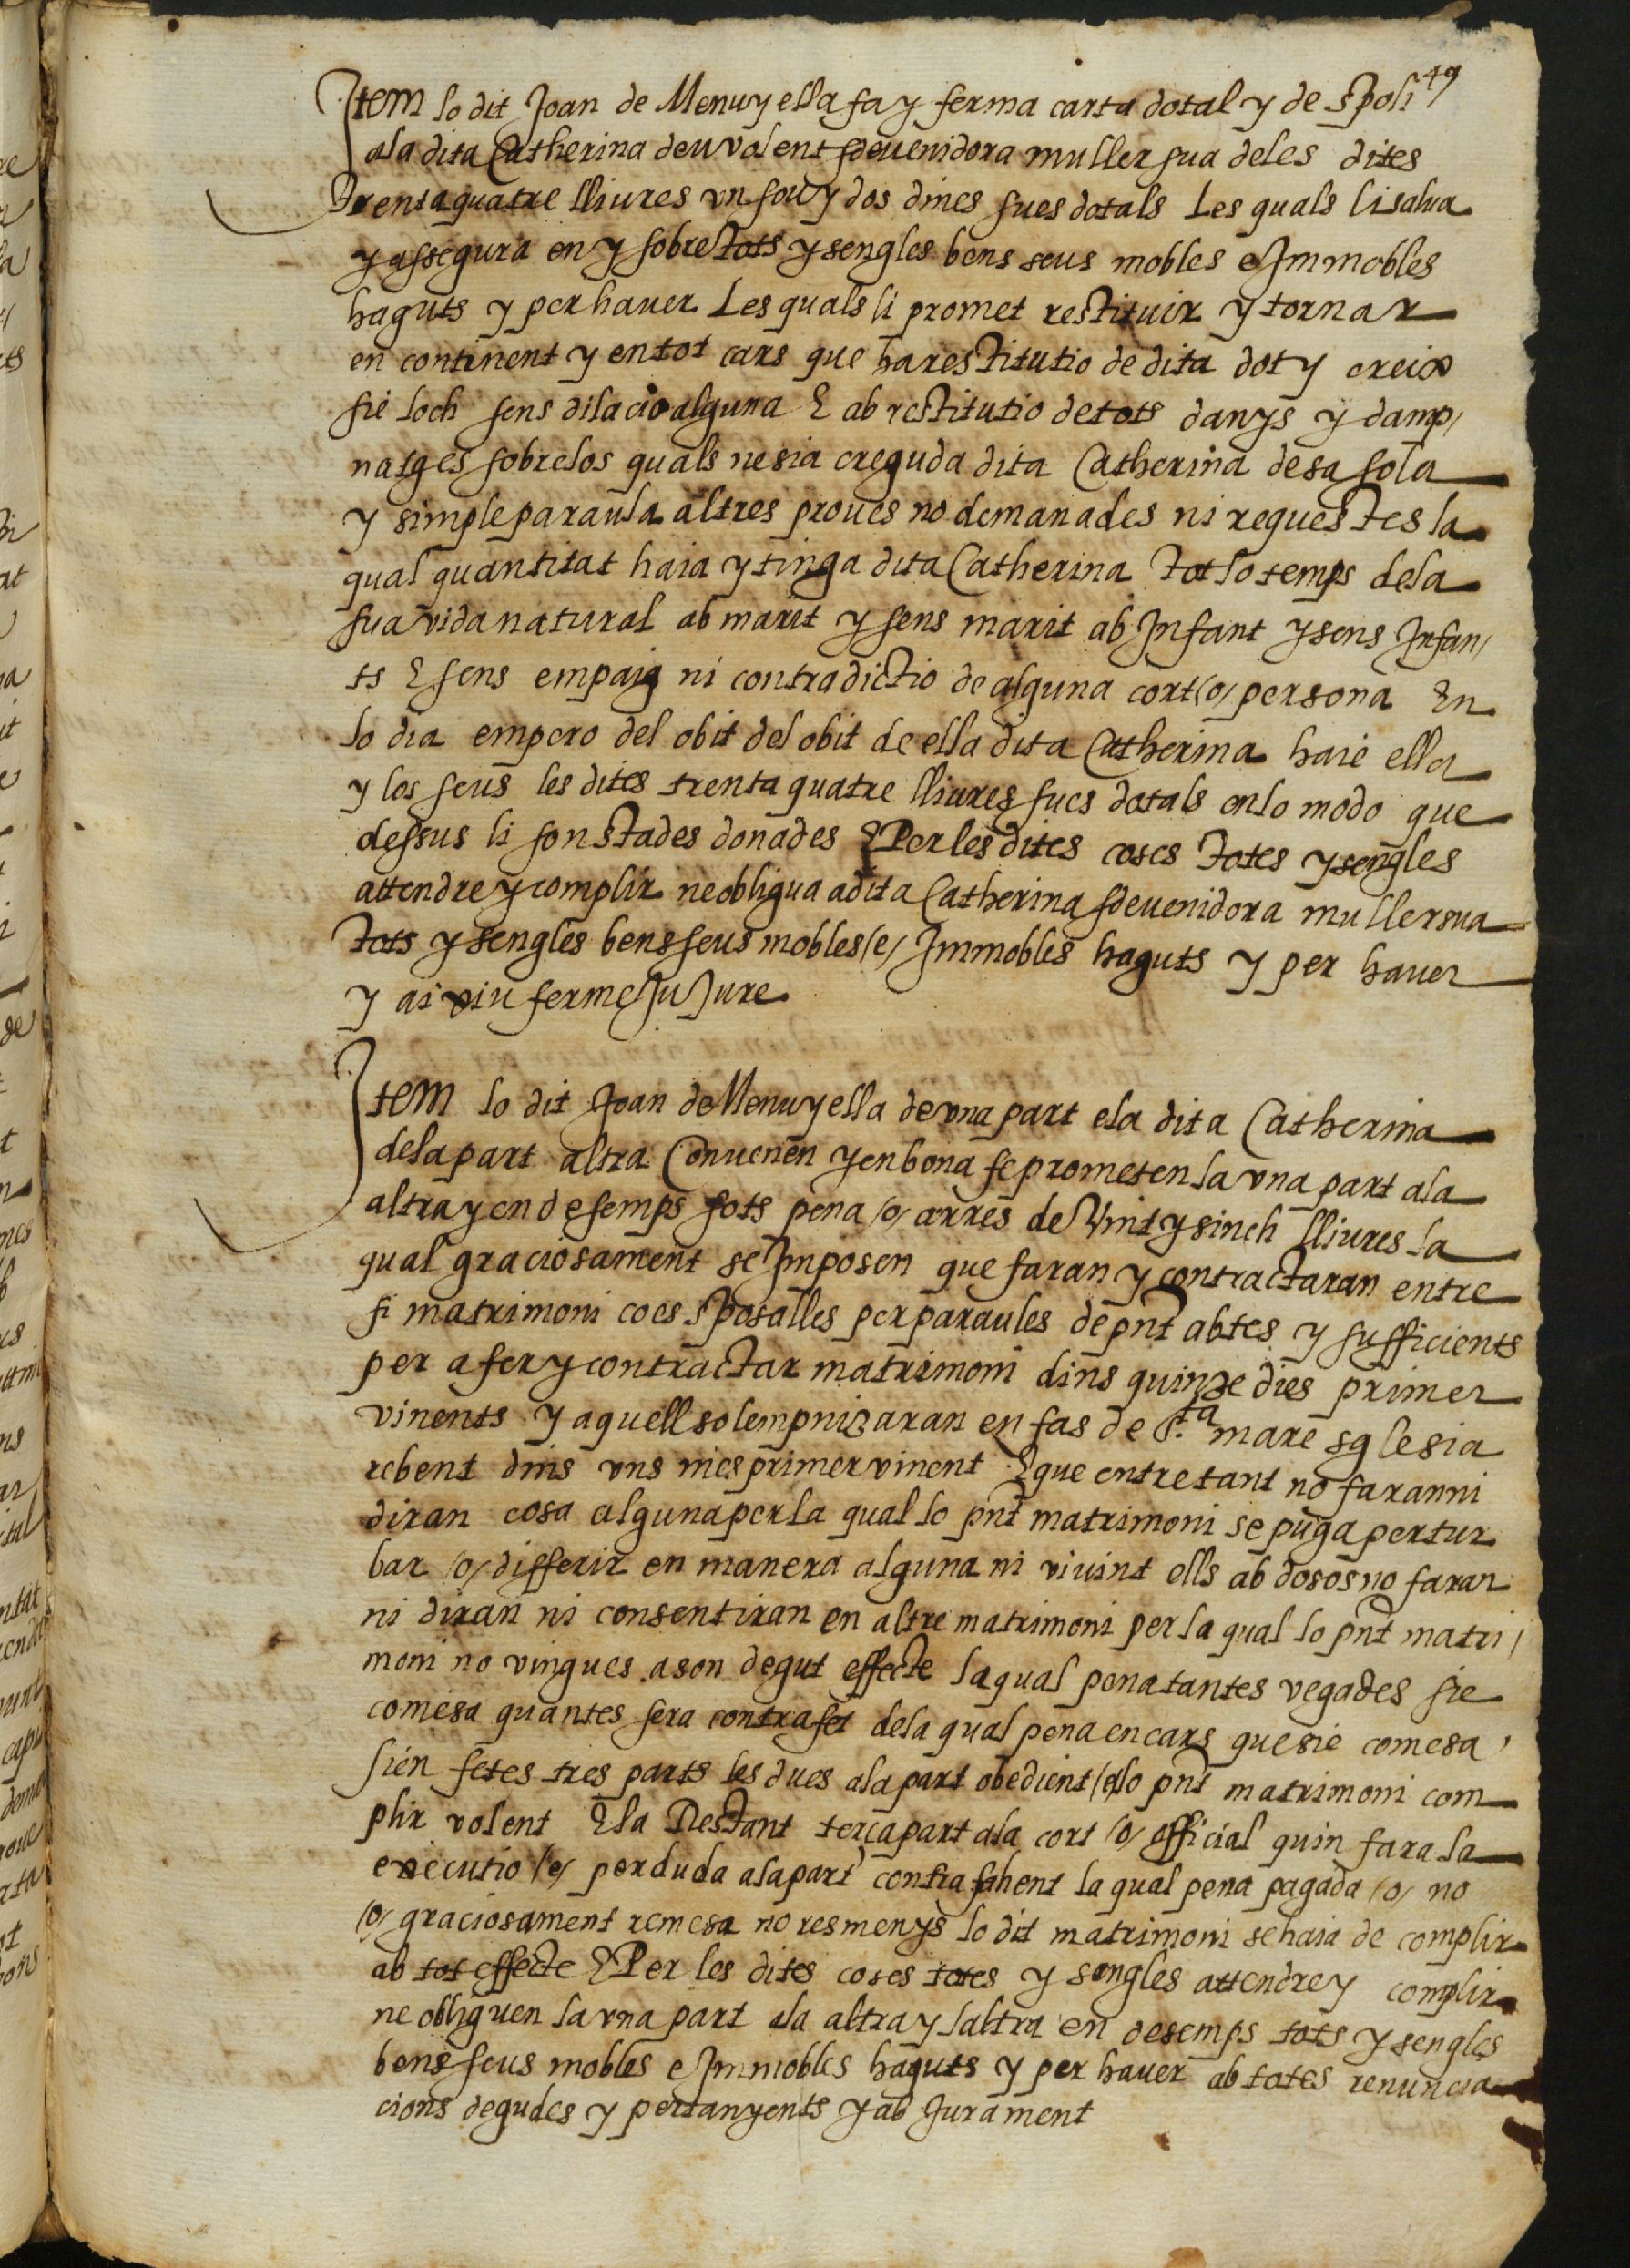 49
Item lo dit Joan de Menuyella fa y ferma carta dotal y de spoli
ala dita Catherina deuvalent sdeuenidora muller sua deles dites
Trenta quatre lliures vn sou y dos dines sues dotals Les quals li salua
y assegura en y sobre tots y sengles bens seus mobles e Jmmobles
haguts y per hauer Les quals li promet restituir y tornar
en continent y en tot cars que ha restitutio de dita dot y creix
sie loch sens dilacio alguna E ab restitutio de tots danys y damp/
natges sobrelos quals ne sia creguda dita Catherina desa sola
y simple paraula altres proues no demanades ni requestes la
qual quantitat haia y tinga dita Catherina tot lo temps dela
sua vida natural ab marit y sens marit ab Jnfant y sens Jnfan/
ts E sens empaig ni contradictio de alguna cort /o/ persona En
lo dia empero del obit del obit de ella dita Catherina haie ella
y los seus les dites trenta quatre lliures sues dotals enlo modo que
dessus li son stades donades E Per les dites coses totes y sengles
attendre y complir ne obligua a dita Catherina sdeuenidora muller sua
Tots y sengles bens seus mobles /e/ Jmmobles haguts y per hauer
y ai viu ferme Ju Jure
Item lo dit Joan de Menuyella de vna part e la dita Catherina
dela part altra Conuenen y en bona fe prometen la vna part ala
altra y en desemps sots pena /o/ arres de Vint y sinch lliures la
qual graciosament se Jmposen que faran y contractaran entre
si matrimoni coes sposalles per paraules de pnt abtes y sufficients
per a fer y contractar matrimoni dins quinze dies primer
vinents y aquell solempnizaran en fas de S.ta mare sglesia
rebent dins vns mes primer vinent E que entretant no faran ni
diran cosa alguna per la qual lo pnt matrimoni se puga pertur
bar /o/ differir en manera alguna ni viuint ells ab dosos no faran
ni diran ni consentiran en altre matrimoni per la qual lo pnt matri/
moni no vingues a son degut effecte la qual pena tantes vegades sie
comesa quantes sera contrafet dela qual pena en cars que sie comesa
sien fetes tres parts les dues ala part obedient /e/ lo pnt matrimoni com
plir volent E la Restant terça part ala cort /o/ official quin fara la
executio /e/ perduda ala part contrafahent la qual pena pagada /o/ no
/o/ graciosament remesa no resmenys lo dit matrimoni se haia de complir
ab tot effecte E Per les dites coses totes y sengles attendre y complir
ne obliguen la vna part ala altra y laltra en desemps tots y sengles
bens seus mobles e Jmmobles haguts y per hauer ab totes renuncia
cions degudes y pertanyents y ab Jurament